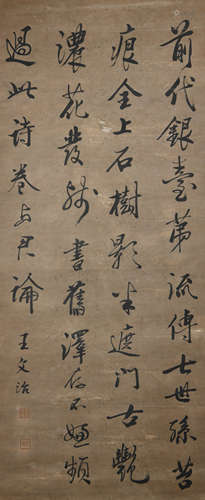 前代銀臺第流傳七世孫苔
痕全上石樹影半遮門古艷
濃花發餘書舊澤存不妨頻
過此詩卷與君論
王文治